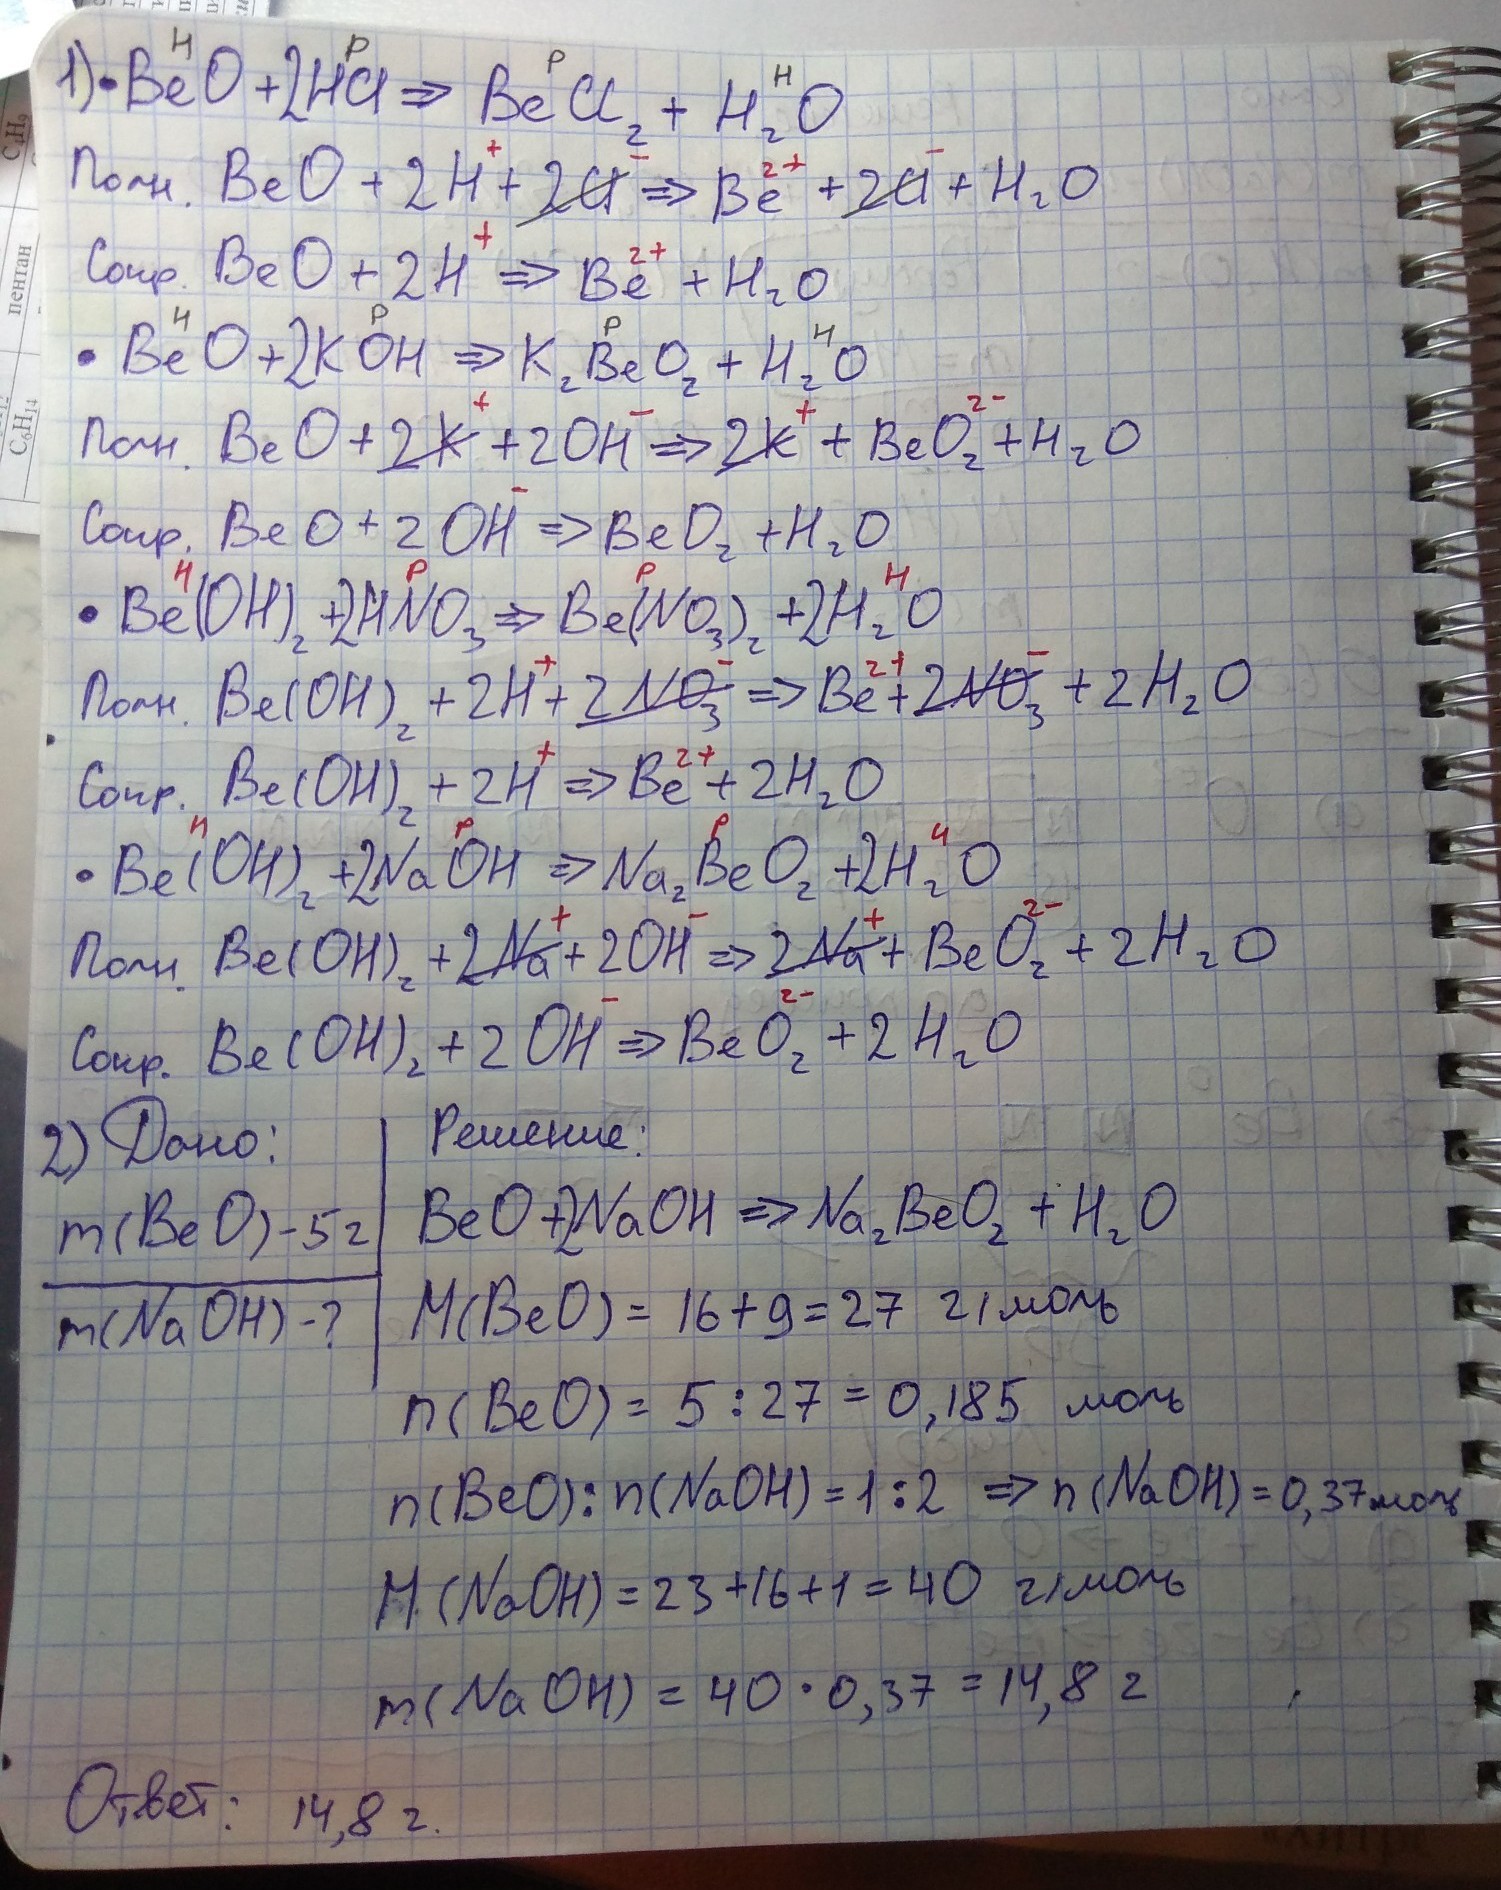 C₄H₉
пентан
C₆H₁₄
Н Р Р Н
1) • BeO + 2HCl => BeCl₂ + H₂O
Полн. BeO + 2H⁺ + 2Cl⁻ => Be²⁺ + 2Cl⁻ + H₂O
Сокр. BeO + 2H⁺ => Be²⁺ + H₂O
Н Р Р Н
• BeO + 2KOH => K₂BeO₂ + H₂O
Полн. BeO + 2K⁺ + 2OH⁻ => 2K⁺ + BeO₂²⁻ + H₂O
Сокр. BeO + 2OH⁻ => BeO₂ + H₂O
Н Р Р Н
• Be(OH)₂ + 2HNO₃ => Be(NO₃)₂ + 2H₂O
Полн. Be(OH)₂ + 2H⁺ + 2NO₃⁻ => Be²⁺ + 2NO₃⁻ + 2H₂O
Сокр. Be(OH)₂ + 2H⁺ => Be²⁺ + 2H₂O
Н Р Р Н
• Be(OH)₂ + 2NaOH => Na₂BeO₂ + 2H₂O
Полн. Be(OH)₂ + 2Na⁺ + 2OH⁻ => 2Na⁺ + BeO₂²⁻ + 2H₂O
Сокр. Be(OH)₂ + 2OH⁻ => BeO₂²⁻ + 2H₂O
2) Дано:
m(BeO) - 5г
m(NaOH) - ?
Решение:
BeO + 2NaOH => Na₂BeO₂ + H₂O
M(BeO) = 16 + 9 = 27 г/моль
n(BeO) = 5 : 27 = 0,185 моль
n(BeO) : n(NaOH) = 1 : 2 => n(NaOH) = 0,37 моль
M(NaOH) = 23 + 16 + 1 = 40 г/моль
m(NaOH) = 40 · 0,37 = 14,8 г
Ответ: 14,8 г.